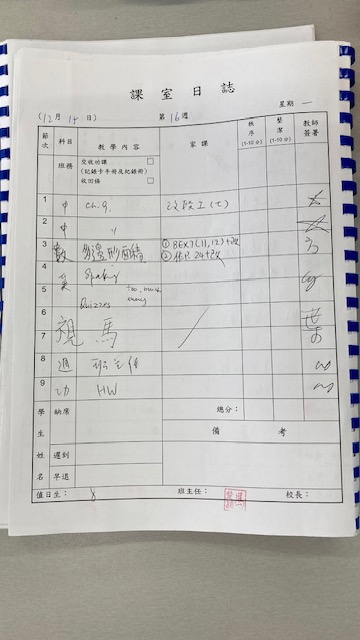 課室日誌
(12月14日) 第16週 星期一
節次 科目 教學內容 家課 秩序(1-10分) 整潔(1-10分) 教師簽署
班務 交收功課
(記錄卡手冊及紀錄冊)
收回條
1 中 ch.9
2 中 〃
3 數 多邊形面積 ① BEX7(11,12)+改
②
4 英
5 Quizzes too, much
6 視 馬
7 葉
8 週 班主任
9 功 HW
學生姓名 缺席 總分：
備考
遲到
早退
值日生： 班主任： 校長：